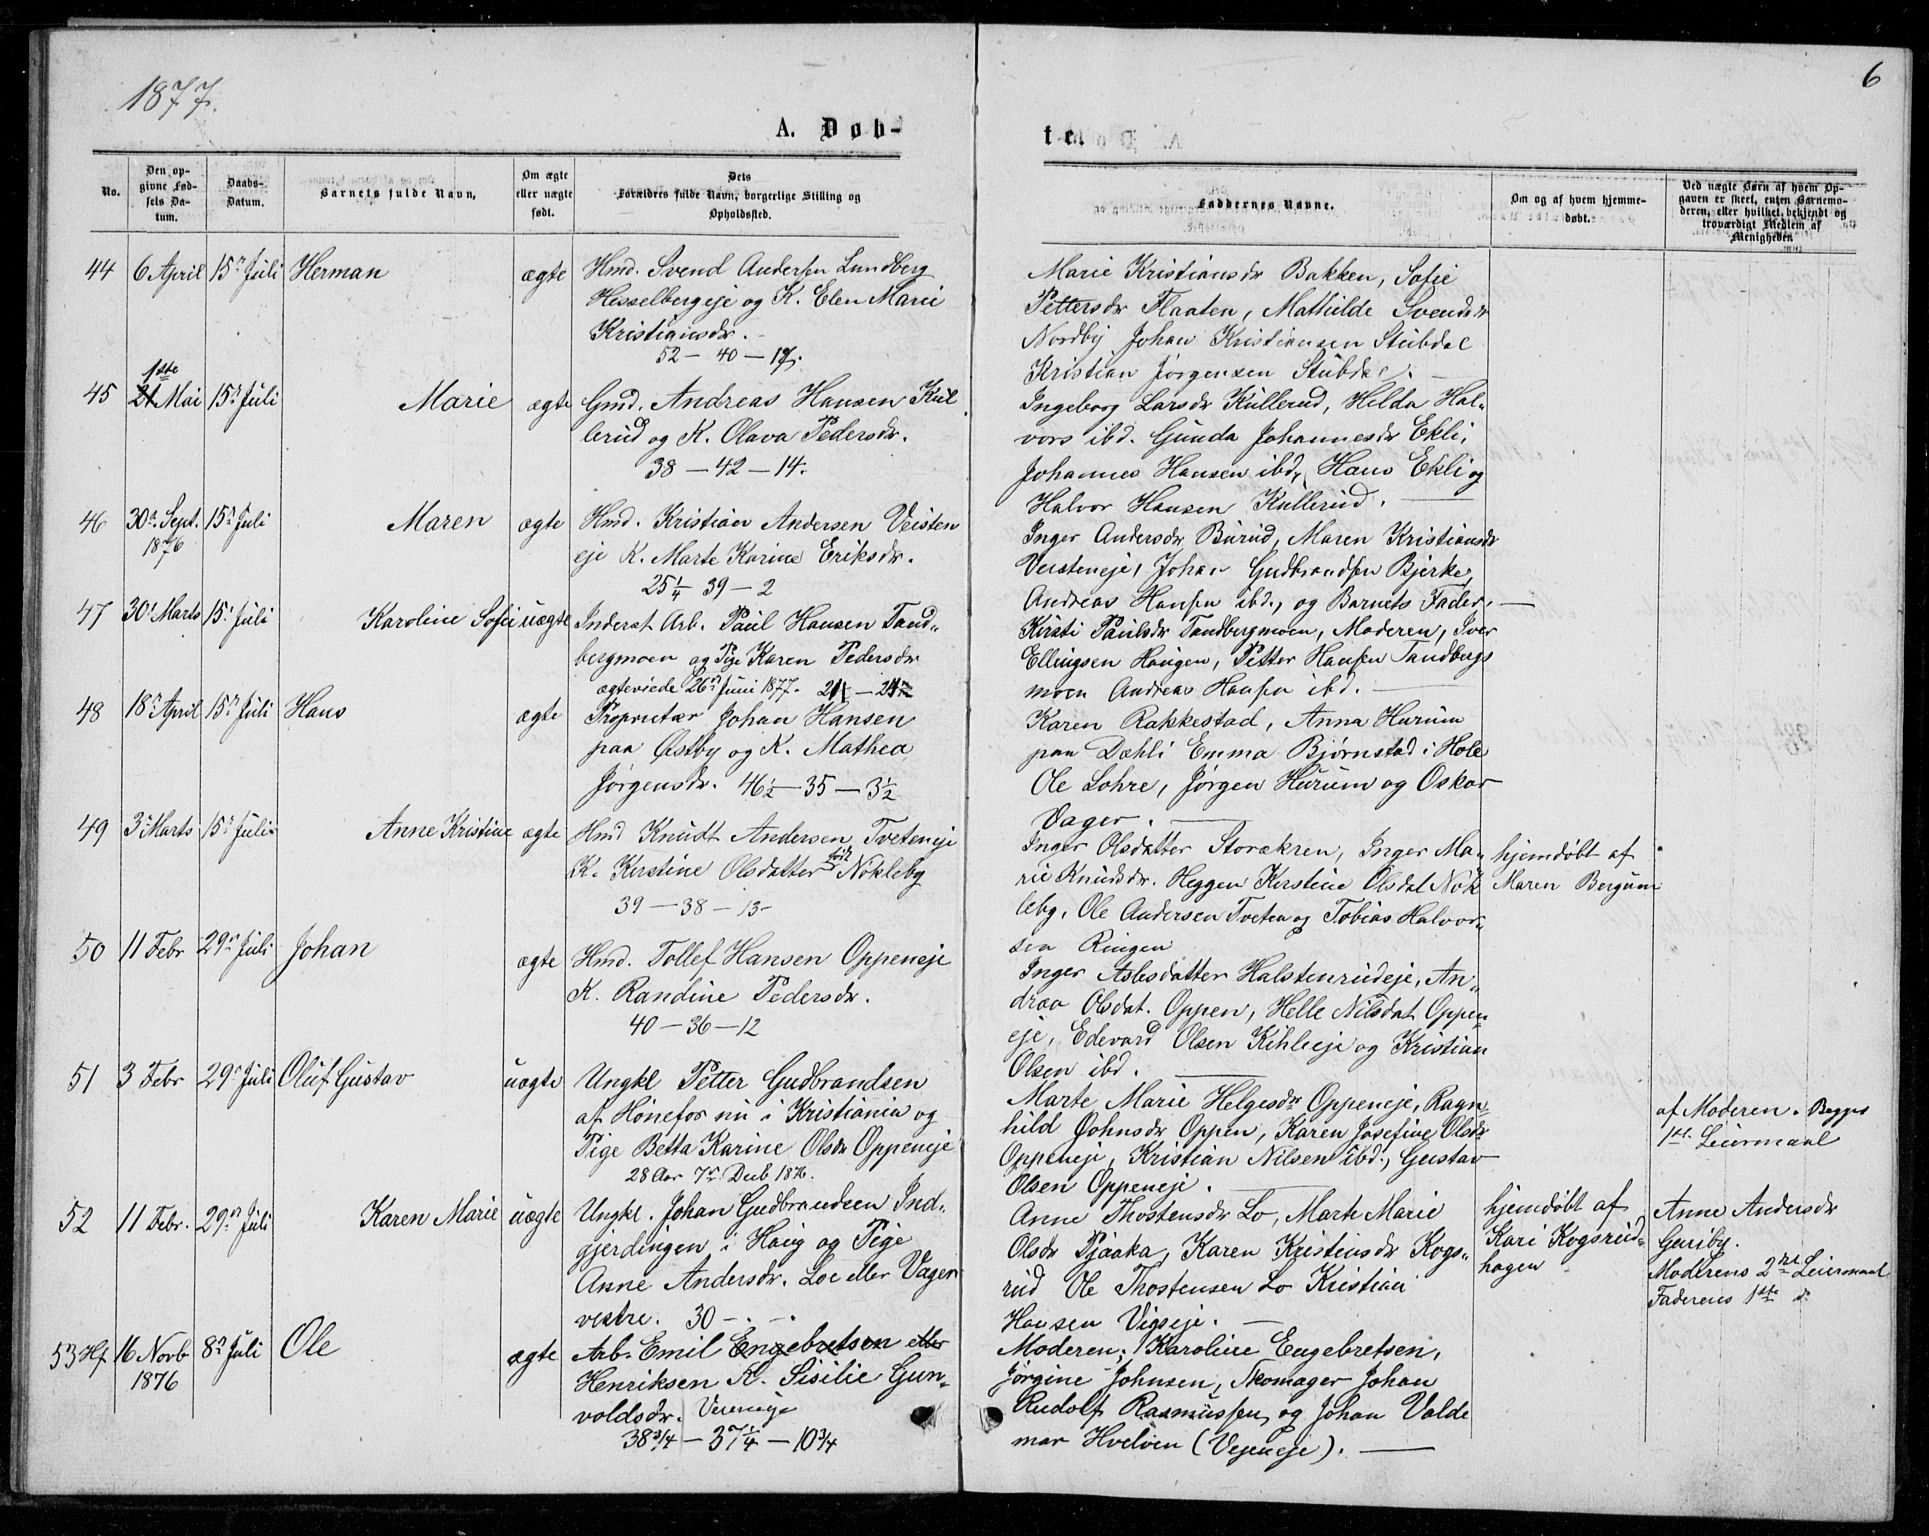 1877.
6
A. Døb-
te
No.
Den op-
givne Fød-
sels Da-
tum.
Daabs-
Datum.
Barnets fulde Navn.
Om ægte
eller uægte
født.
Dets
Forældres fulde Navn, borgerlige Stilling og
Opholdssted.
Faddernes Navne.
Om og af hvem hjemme-
døbt.
Ved uægte Børn af hvem Op-
gaven er skeet, enten Barnemo-
deren, eller hvilket bekjendt og
troværdigt Medlem af
Menigheden
44 6 April 15n Juli Herman ægte Hmd. Svend Andersen Lundberg
Hesselbergeje og K. Elen Marie
Kristiansdr.
52 — 40 — 17.
Marie Kristiansdr Bakken, Sofie
Pettersdr Flaaten, Mathilde Svendsdr
Nordby Johan Kristiansen Stubdal
Kristian Jørgensen Stubdal.
45 1ste 21 Mai 15n Juli Marie ægte Gmd. Andreas Hansen Kul
lerud og K. Olava Pedersdr.
38 — 42 — 14.
Ingeborg Larsdr Kullerud, Helda Hal-
vors ibd. Gunda Johannesdr Ekli,
Johannes Hansen ibd, Hans Ekli og
Halvor Hansen Kullerud.
46 30n Sept. 1876 15n Juli Maren ægte Hmd. Kristian Andersen Veisten
eje K. Marte Karine Eriksdr.
25 1/4 39 — 2
Inger Andersdr Burud, Maren Kristiansdr
Veisteneje, Johan Gudbrandsen Bjerke,
Andreas Hansen ibd., og Barnets Fader.
47 30n Marts 15n Juli Karoline Sofie uægte Inderst Arb. Paul Hansen Tand-
bergmoen og Pige Karen Pedersdr
ægteviede 26n Juni 1877.
Kirsti Paulsdr Tandbergmoen, Moderen, Iver
Ellingsen Haugen, Petter Hansen Tandbergs
moen Andreas Hansen ibd.
48 18n April 15n Juli Hans ægte Proprietær Johan Hansen
paa Østby og K. Mathea
Jørgensdr. 46 1/2 — 35 — 3 1/2
Karen Rakkestad, Anna Hurum
paa Dæhli Emma Bjørnstad i Hole
Ole Lohre, Jørgen Hurum og Oskar
Vager.
49 3n Marts 15n Juli Anne Kristine ægte Hmd Knudt Andersen Tveteneje
K. Kirstine Olsdatter født Nökleby
39 — 38 — 13
Inger Olsdatter Storækren, Inger Ma-
rie Knudsdr. Heggen Kirstine Olsdat Nök
leby, Ole Andersen Tveten og Tobias Halvor-
sen Ringen
hjemdøbt af
Maren Bergum
50 11 Febr 29n Juli Johan ægte Hmd. Tollef Hansen Oppeneje
K. Randine Pedersdr.
40 — 36 — 12
Inger Aslesdatter Halstenrudeje, An-
drea Olsdat. Oppen, Helle Nilsdat Oppen-
eje, Edevard Olsen Kihleeje og Kristian
Olsen ibd.
51 3 Febr 29n Juli Oluf Gustav uægte Ungkl Petter Gudbrandsen
af Hönefos nu i Kristiania og
Pige Betta Karine Olsdr Oppeneje
28 Aar 7n Decb 1876.
Marte Marie Helgesdr Oppeneje, Ragn-
hild Johnsdr Oppen, Karen Josefine Olsdr
Oppeneje, Kristian Nilsen ibd., Gustav
Olsen Oppeneje.
af Moderen. Begges
1ste Leiermaal
52 11 Febr. 29n Juli Karen Marie uægte Ungkl. Johan Gudbrandsen Ind-
gjerdingen i Haug og Pige
Anne Andersdr. Loe eller Vager
vestre. 30 —
Anne Thostensdr Lo, Marte Marie
Olsdr Pjaaka, Karen Kristinsdr Kogs-
rud Ole Thostensen Lo Kristian
Hansen Vigseje.
hjemdøbt af
Kari Kogsrud-
hagen
Anne Andersdr
Guriby.
Moderens 2net Leiermaal
Faderens 1ste do
53 Hf 16 Novb 1876 8n Juli Ole ægte Arb. Emil Engebretsen eller
Henriksen K. Sisilie Gun-
voldsdr. Veieneje
38 3/4 — 37 1/4 — 10 3/4
Moderen; Karoline Engebretsen,
Jørgine Johnsen, Skomager Johan
Rudolf Rasmussen, og Johan Valde
mar Hvelven (Vejeneje).